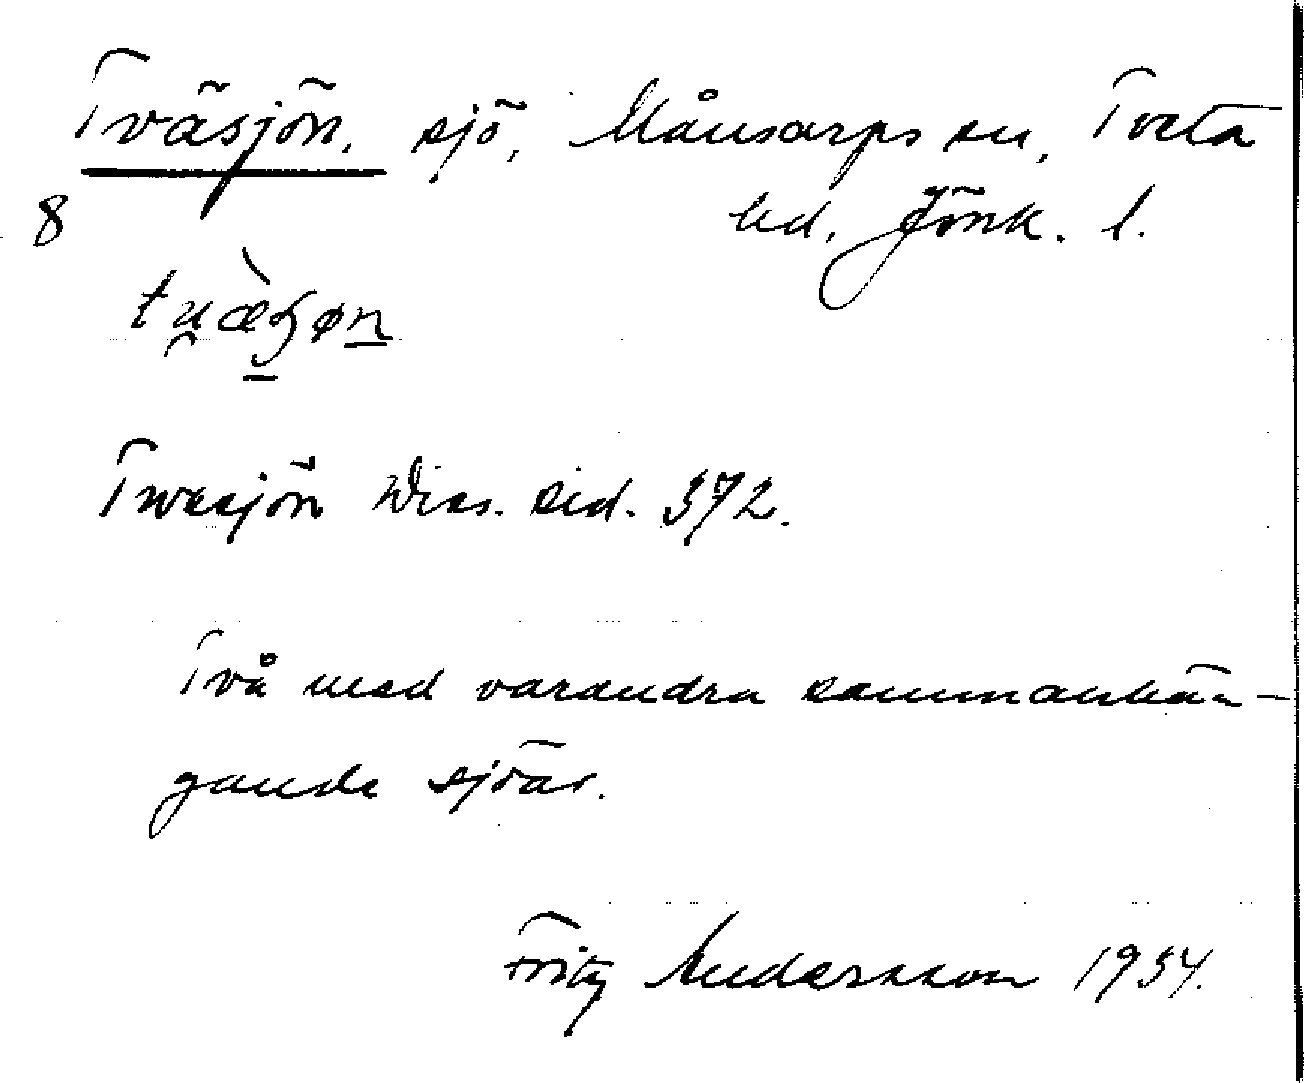 Tväsjön, sjö, Månsarps sn, Tveta
8 hd, Jönk. l.
Twesjön Wies. sid. 372.
Två med varandra sammanhän-
gande sjöar.
Fritz Andersson 1934.